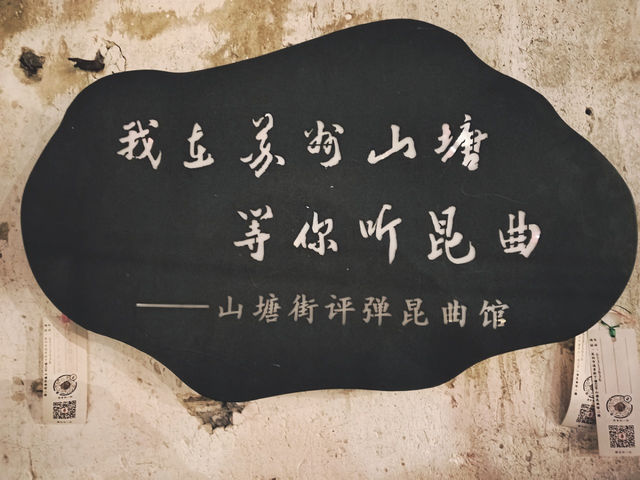 我在苏州山塘
等你听昆曲
——山塘街评弹昆曲馆